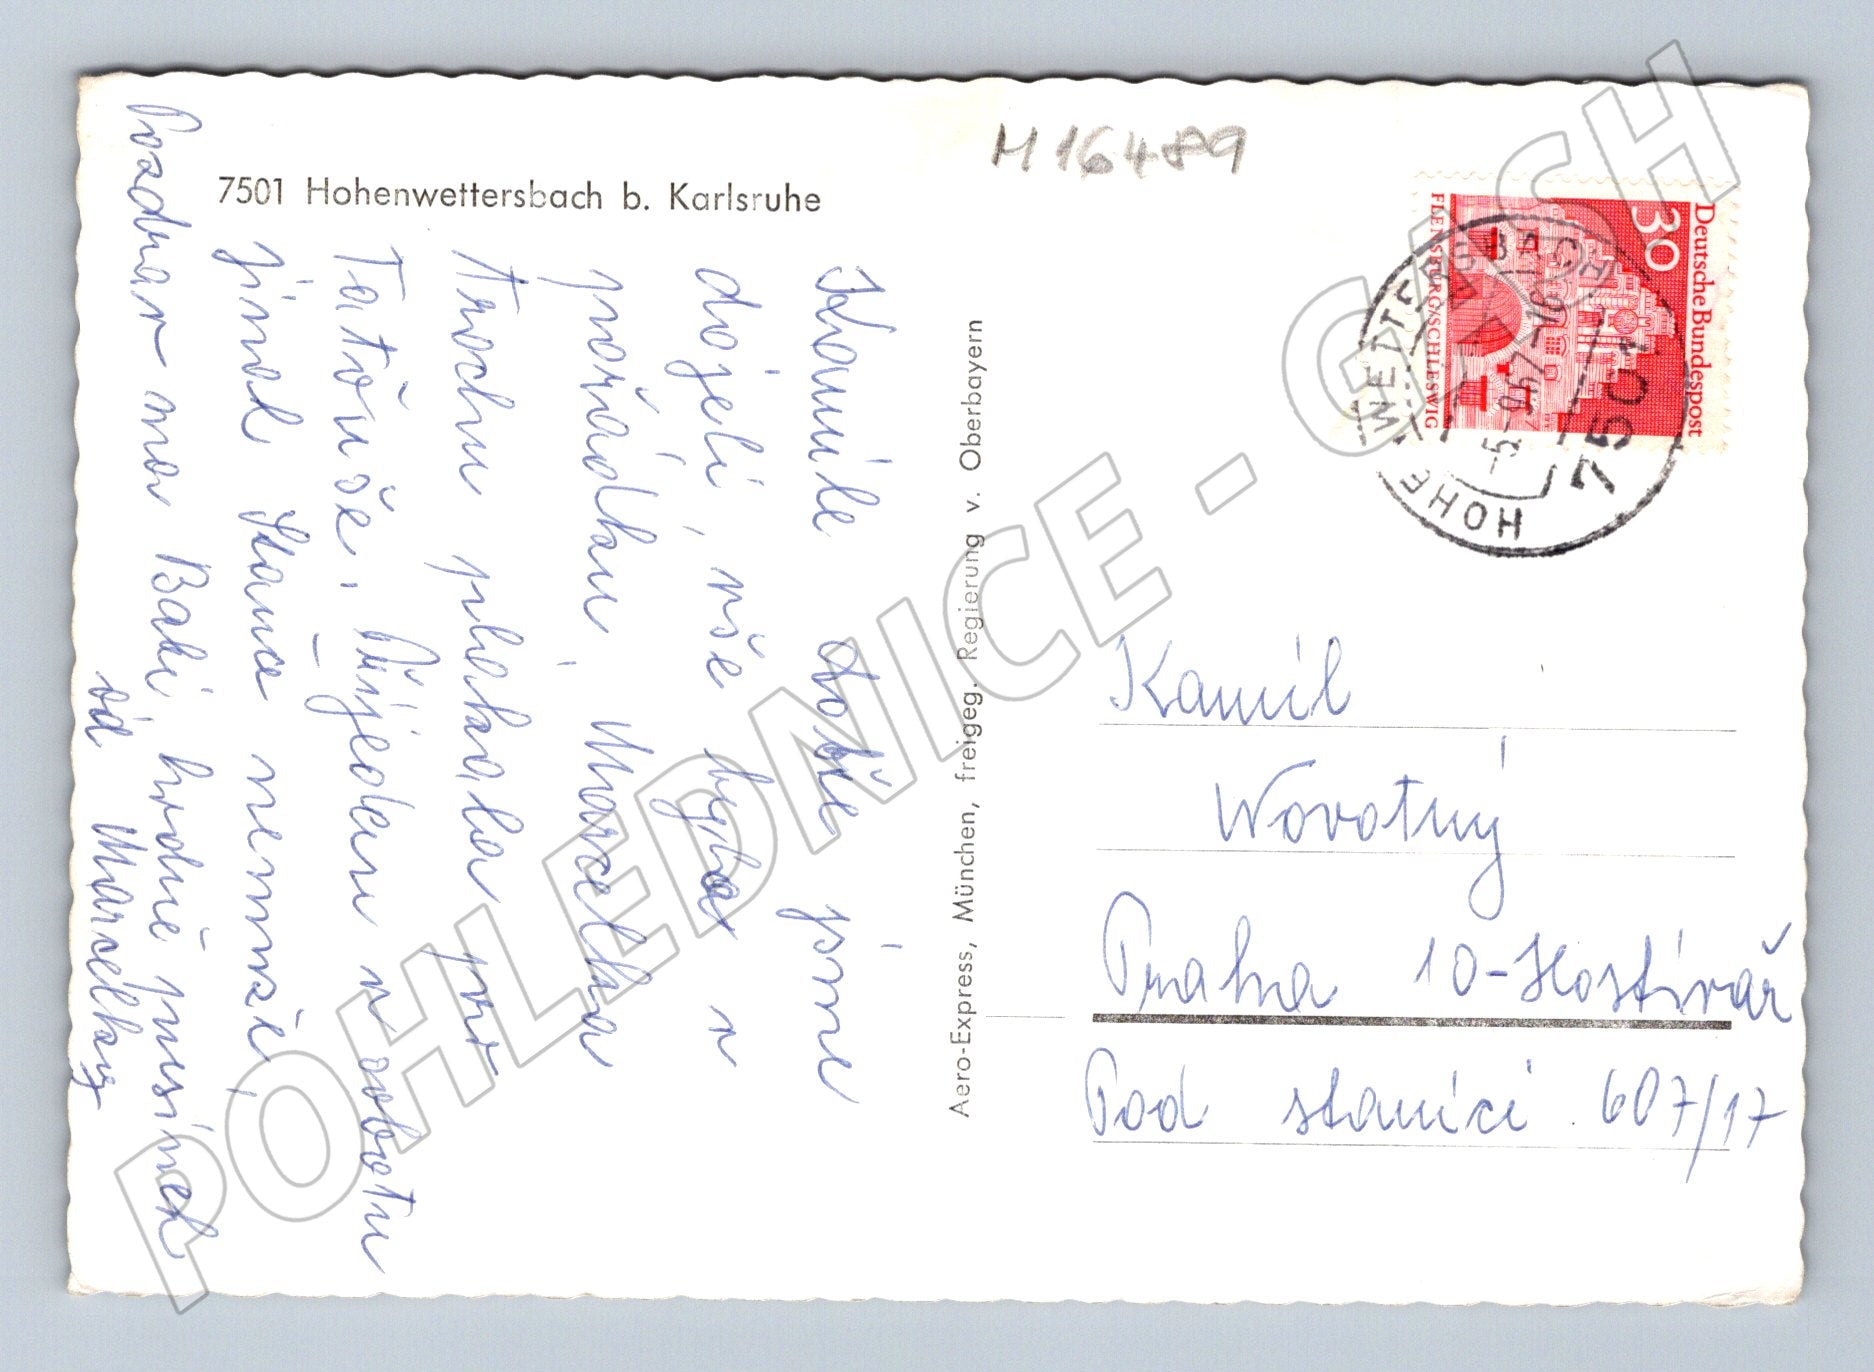 7501 Hohenwettersbach b. Karlsruhe
M 16489
Deutsche Bundespost
30
FLENSBURG/SCHLESWIG
HOHENWETTERSBACH
-5.-9.67-16
7501
Kamile dobře jsme
dojeli, vše bylo v
pořádku, Marcelka
trochu plakala pro
Tatouše. Přijedem v sobotu
jinak Stáňa nemůže,
Pozdrav na Babi, hodně pusinek
od Marcelky
Aero-Express, München, freigeg. Regierung v. Oberbayern
Kamil
Novotný
Praha 10-Hostivař
Pod stanicí 607/17
POHLEDNICE - GASH